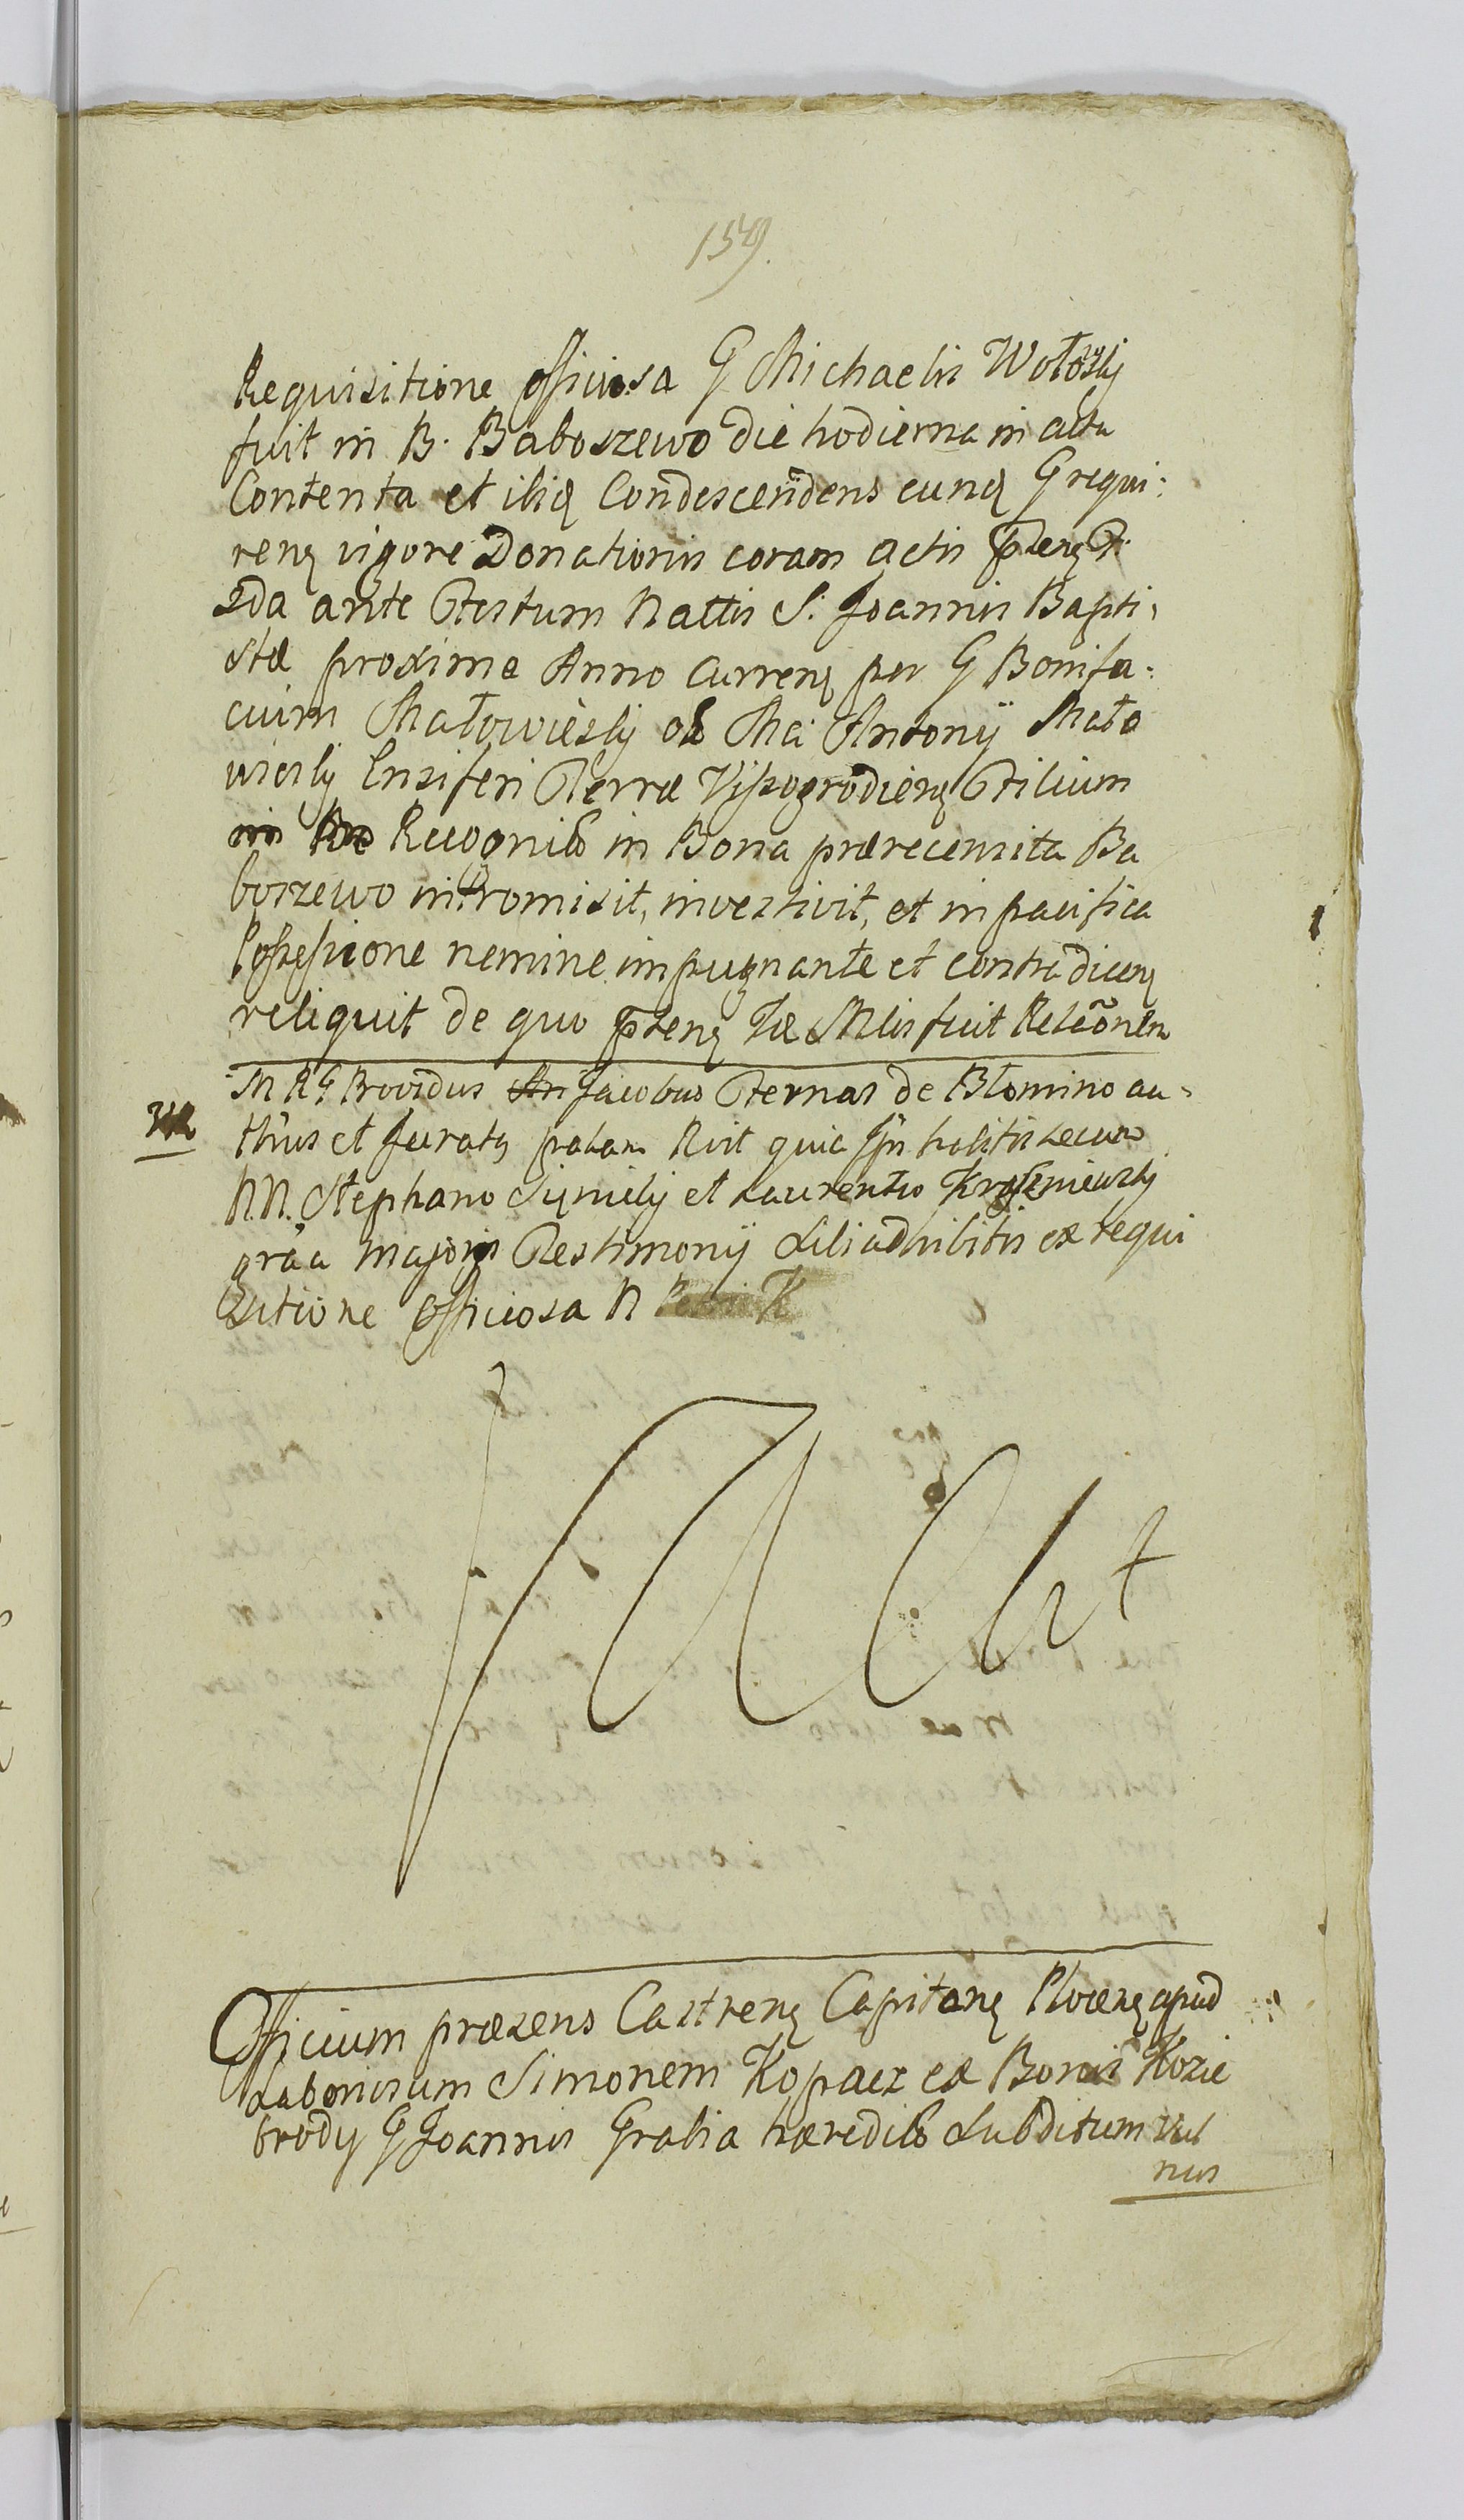 159.
Requisitione officiosa G Michaelis Wołosky
fuit in B. Baboszewo die hodierna in actu
Contenta et ibiq Condescendens eunq G requi:
renq vigore Donationis coram actis pntenq F.
2da ante Festum Nattis S. Joannis Bapti:
stæ proxime Anno Currenq per G Bonifa:
cium Małowiesky olo Mci Antonij Mało
wiesky Ensiferi Terræ Wyszogrodienq Filium
Recognilo in Bona prærecensita Ba
boszewo intromisit, investivit, et in pacifica
Possessione nemine impugnante et contradicenq
reliquit de quo pntenq suæ Mlis fecit Relãonem
M R G Providus Jacobus Ternas de Błomino au-
VR
thus et Juratq palam Rvit quia Jpse habitis secum
N.N. Stephano et Laurentio
grãa majoris Testimonij sibi adhibitis ex requi
sitione officiosa N
Officium præsens Castrenq Capitanq Plocenq apud
Laboriosum Simonem Kopacz ex Bonis Kozie
brody G Joannis Grabia hæredilo Subditum Vul
nus